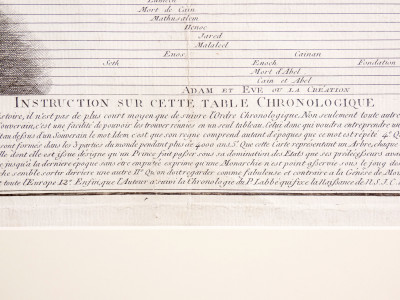 Mort de Cain
Mathusalem
Henoc
Jared
Malaleel
Enos Cainan
Seth Enoch Fondation
Mort d'Abel
Cain et Abel
ADAM ET EVE OU LA CRÉATION
INSTRUCTION SUR CETTE TABLE CHRONOLOGIQUE
istoire, il n'est pas de plus court moyen que de suivre l'Ordre Chronologique. Non seulement toute autre
Souverain, c'est une facilité de pouvoir les trouver réunies en un seul tableau. Celui donc qui voudra entreprendre un
au dessus d'un Souverain le mot Idem, c'est que son regne comprend autant d'époques que ce mot est répété 4º Qu
sont formés dans les 3 parties du monde pendant plus de 4000 ans 5º Que cette Carte représentant un Arbre, chaque
lle dont elle est issue désigne qu'un Prince fait passer sous sa domination des Etats que ses prédécesseurs avoi
e jusqu'à la derniere époque sans être empiété exprime qu'une Monarchie n'est point asservie sous le joug des
che semble sortir derriere une autre 11º Qu'on doit regarder comme fabuleuse et contraire a la Génèse de Moï
toute l'Europe 12º Enfin, que l'Auteur a suivi la Chronologie du P. Labbé qui fixe la Naissance de N.S.J.C. a